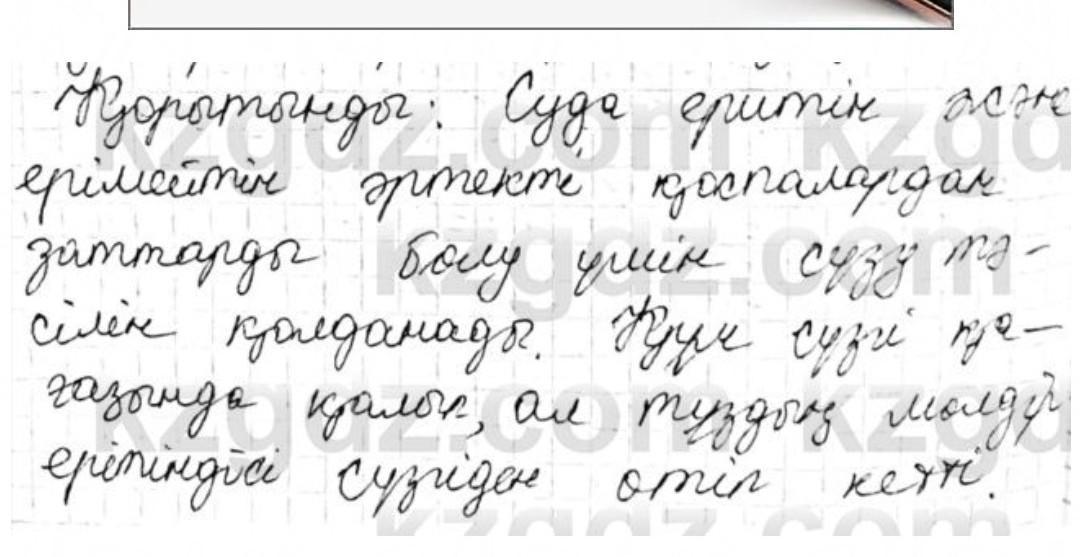 Қорытынды: Суда еритін және
ерімейтін әртекті қоспалардан
заттарды бөлу үшін сүзу тә-
сілін қолданады. Құм сүзгі қа-
ғазында қалып, ал тұздың мөлдір
ерітіндісі сүзгіден өтіп кетті.
kzgdz.com kzgdz
kzgdz.com
kzgdz.com kzgdz
kzgdz.com